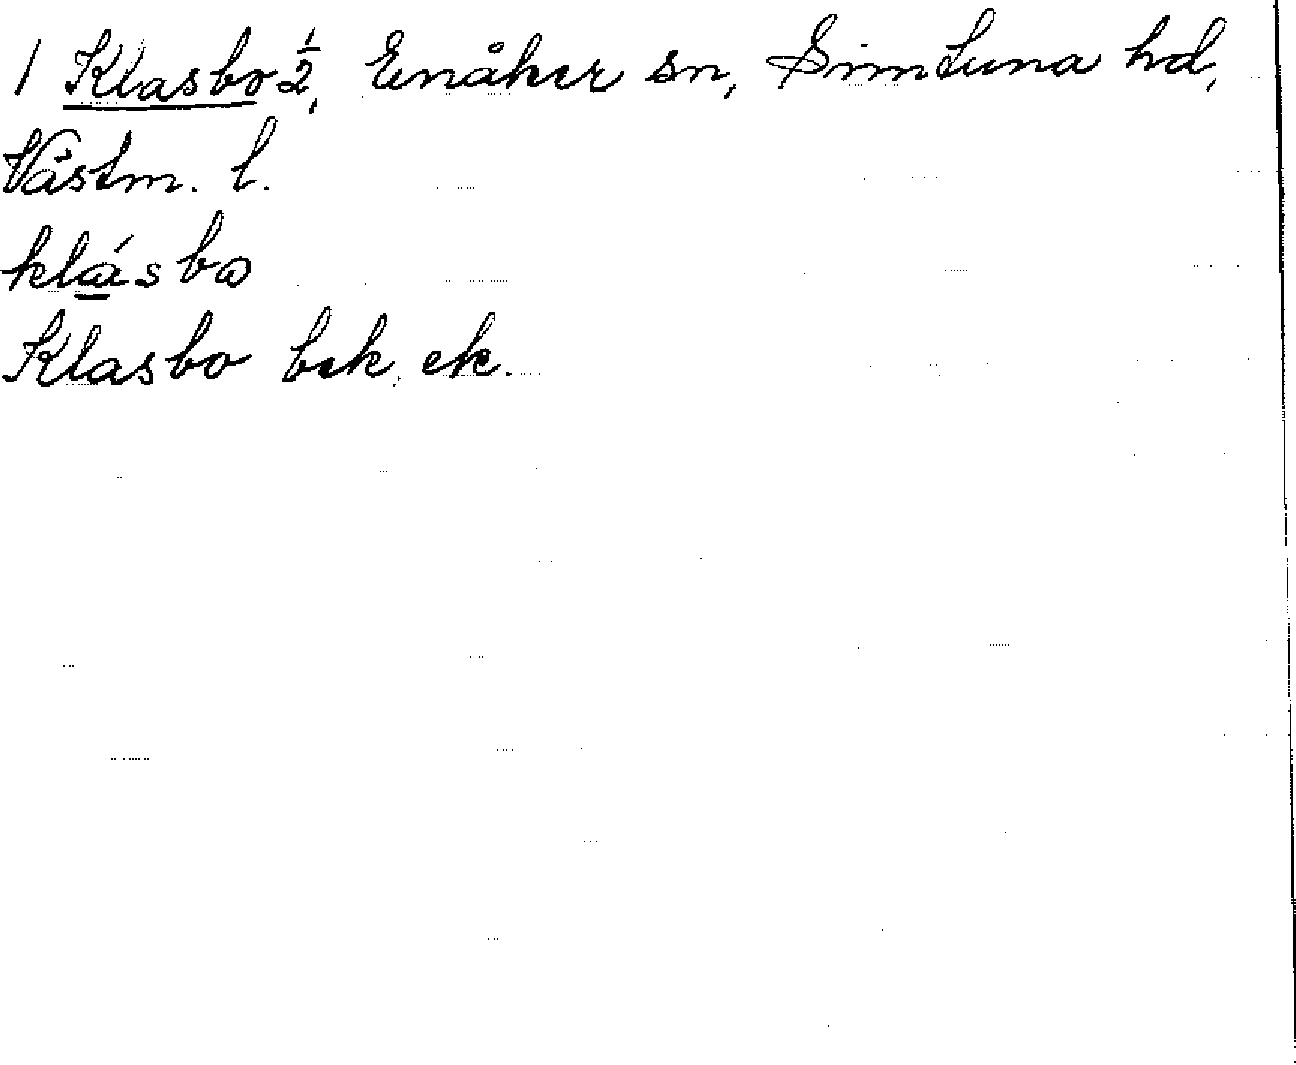 1 Klasbo ½, Enåker sn, Simtuna hd,
Västm. l.
klásbo
Klasbo bek. ek.